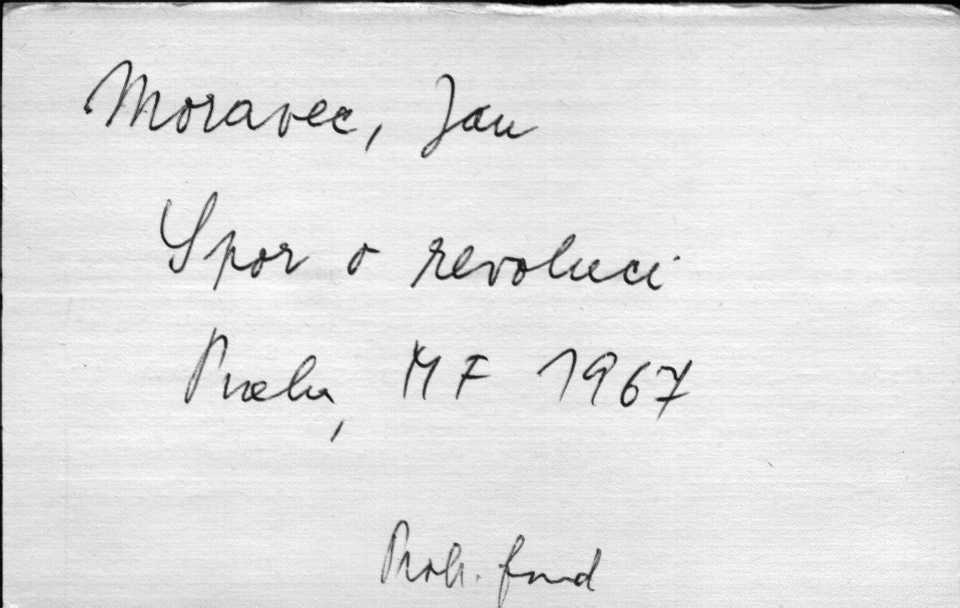 Moravec, Jan
Spor o revoluci
Praha, MF 1967
Proh. fond